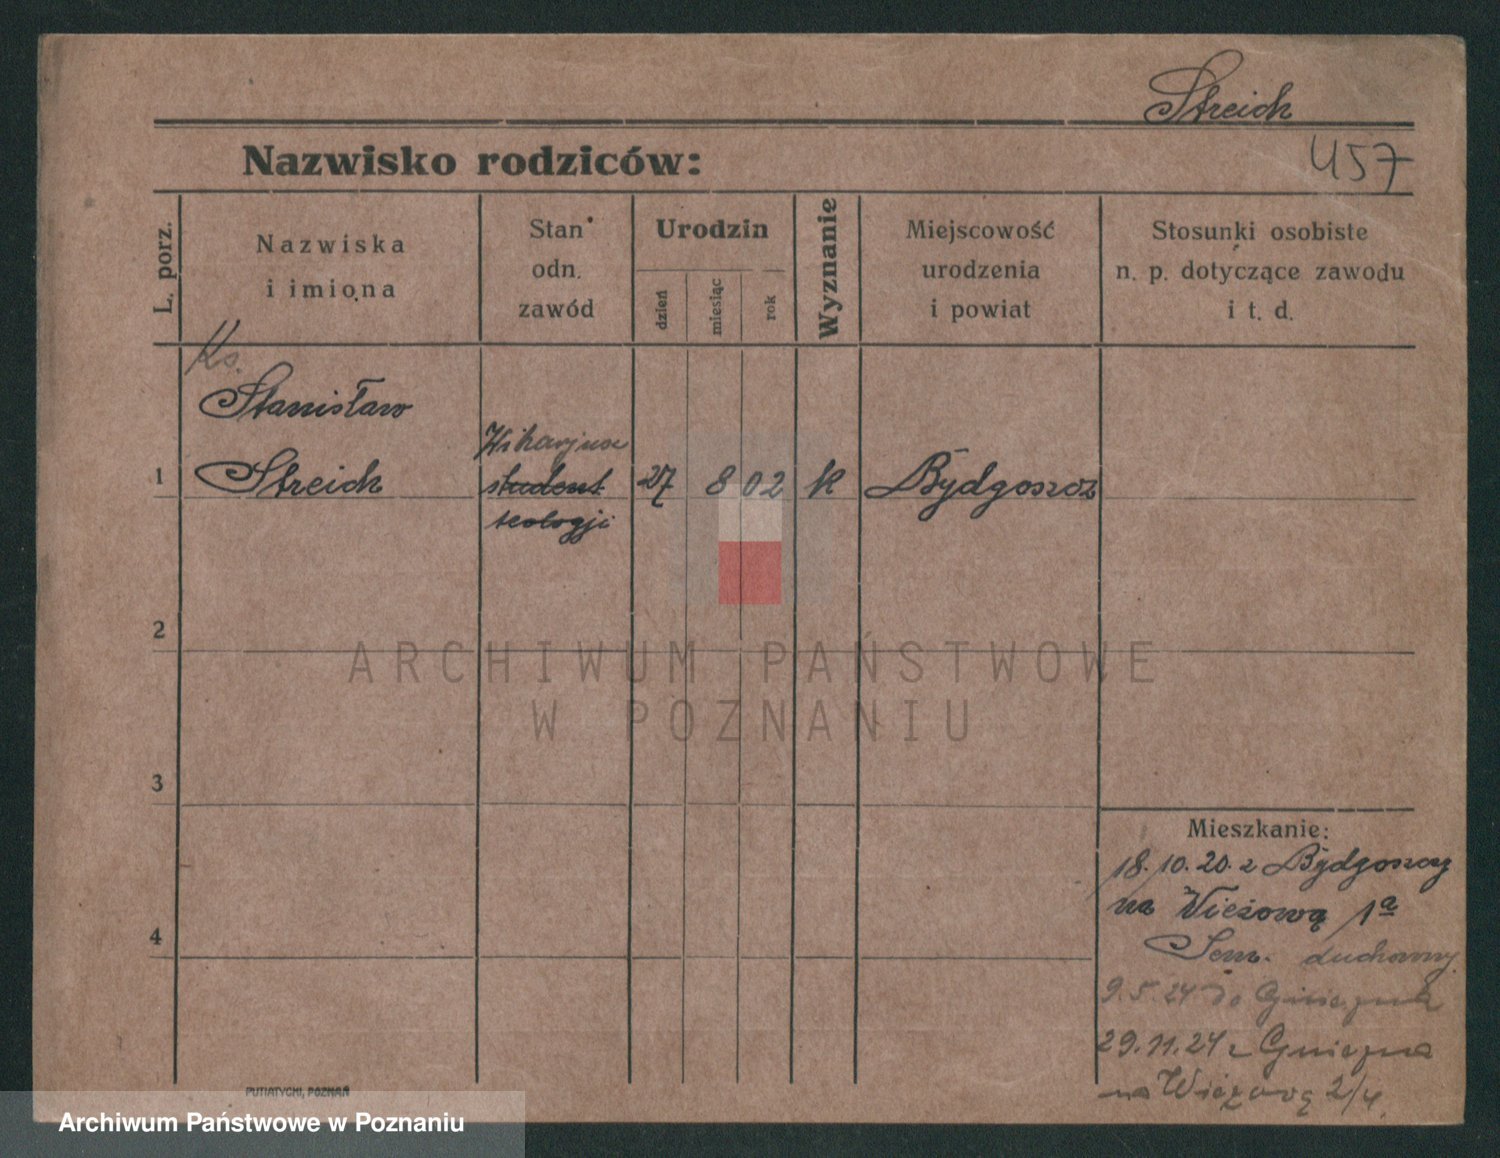 Streich
Nazwisko rodziców:
457
L. porz.
Nazwiska
i imiona
Stan
odn.
zawód
Urodzin
dzień
miesiąc
rok
Wyznanie
Miejscowość
urodzenia
i powiat
Stosunki osobiste
n. p. dotyczące zawodu
i t. d.
Ks.
Stanisław
Wikarjusz
1 Streich student 27 8 02 k Bydgoszcz
teologji
2
ARCHIWUM PAŃSTWOWE
W POZNANIU
3
Mieszkanie:
18.10.20. z Bydgoszczy
na Wieżową 1a
4
Sem. duchowny.
9.5.24 do Gniezna
29.11.24 z Gniezna
na Wieżową 2/4.
PUTIATYCKI, POZNAŃ
Archiwum Państwowe w Poznaniu